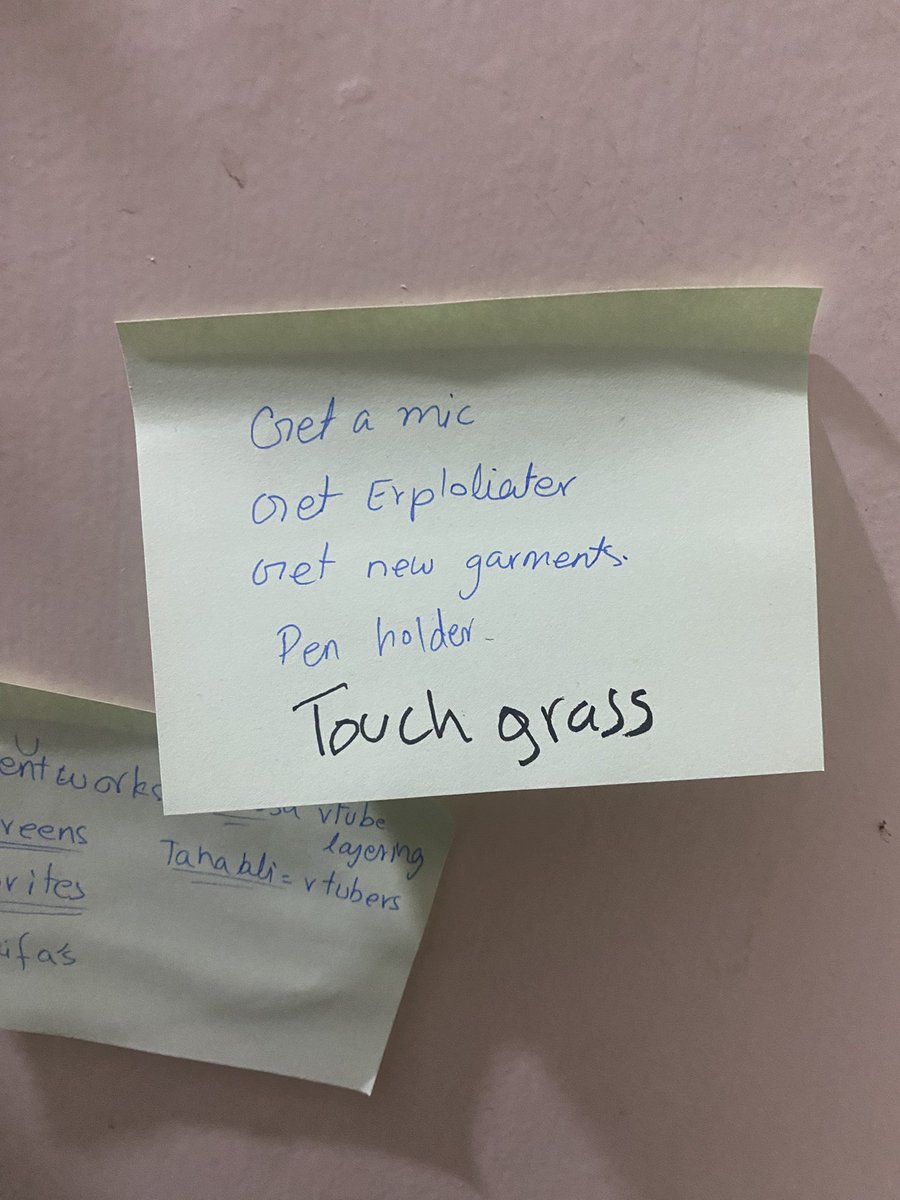 Get a mic
Get Exploliater
Get new garments.
Pen holder
Touch grass
works
vtube
layering
Tanabli = vtubers